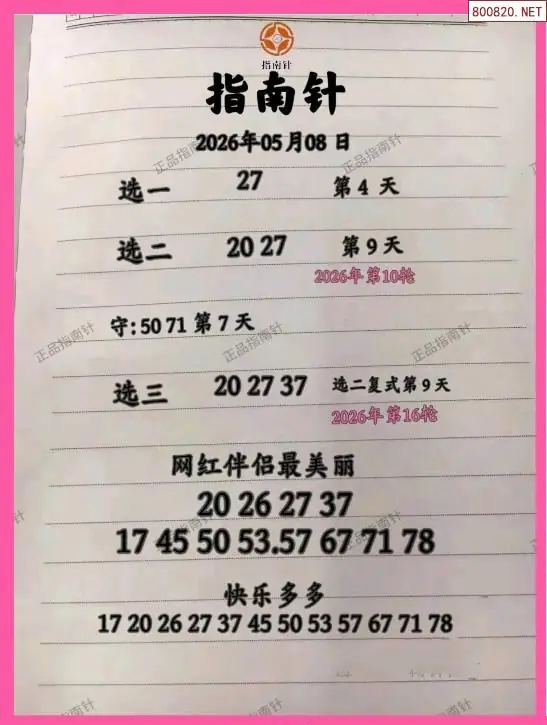 800820.NET
指南针
指南针
2026年05月08日
选一 27 第4天
选二 20 27 第9天
2026年第10轮
守:50 71 第7天
选三 20 27 37 选二复式第9天
2026年第16轮
网红伴侣最美丽
20 26 27 37
17 45 50 53.57 67 71 78
快乐多多
17 20 26 27 37 45 50 53 57 67 71 78
正品指南针
正品指南针
正品指南针
正品指南针
正品指南针